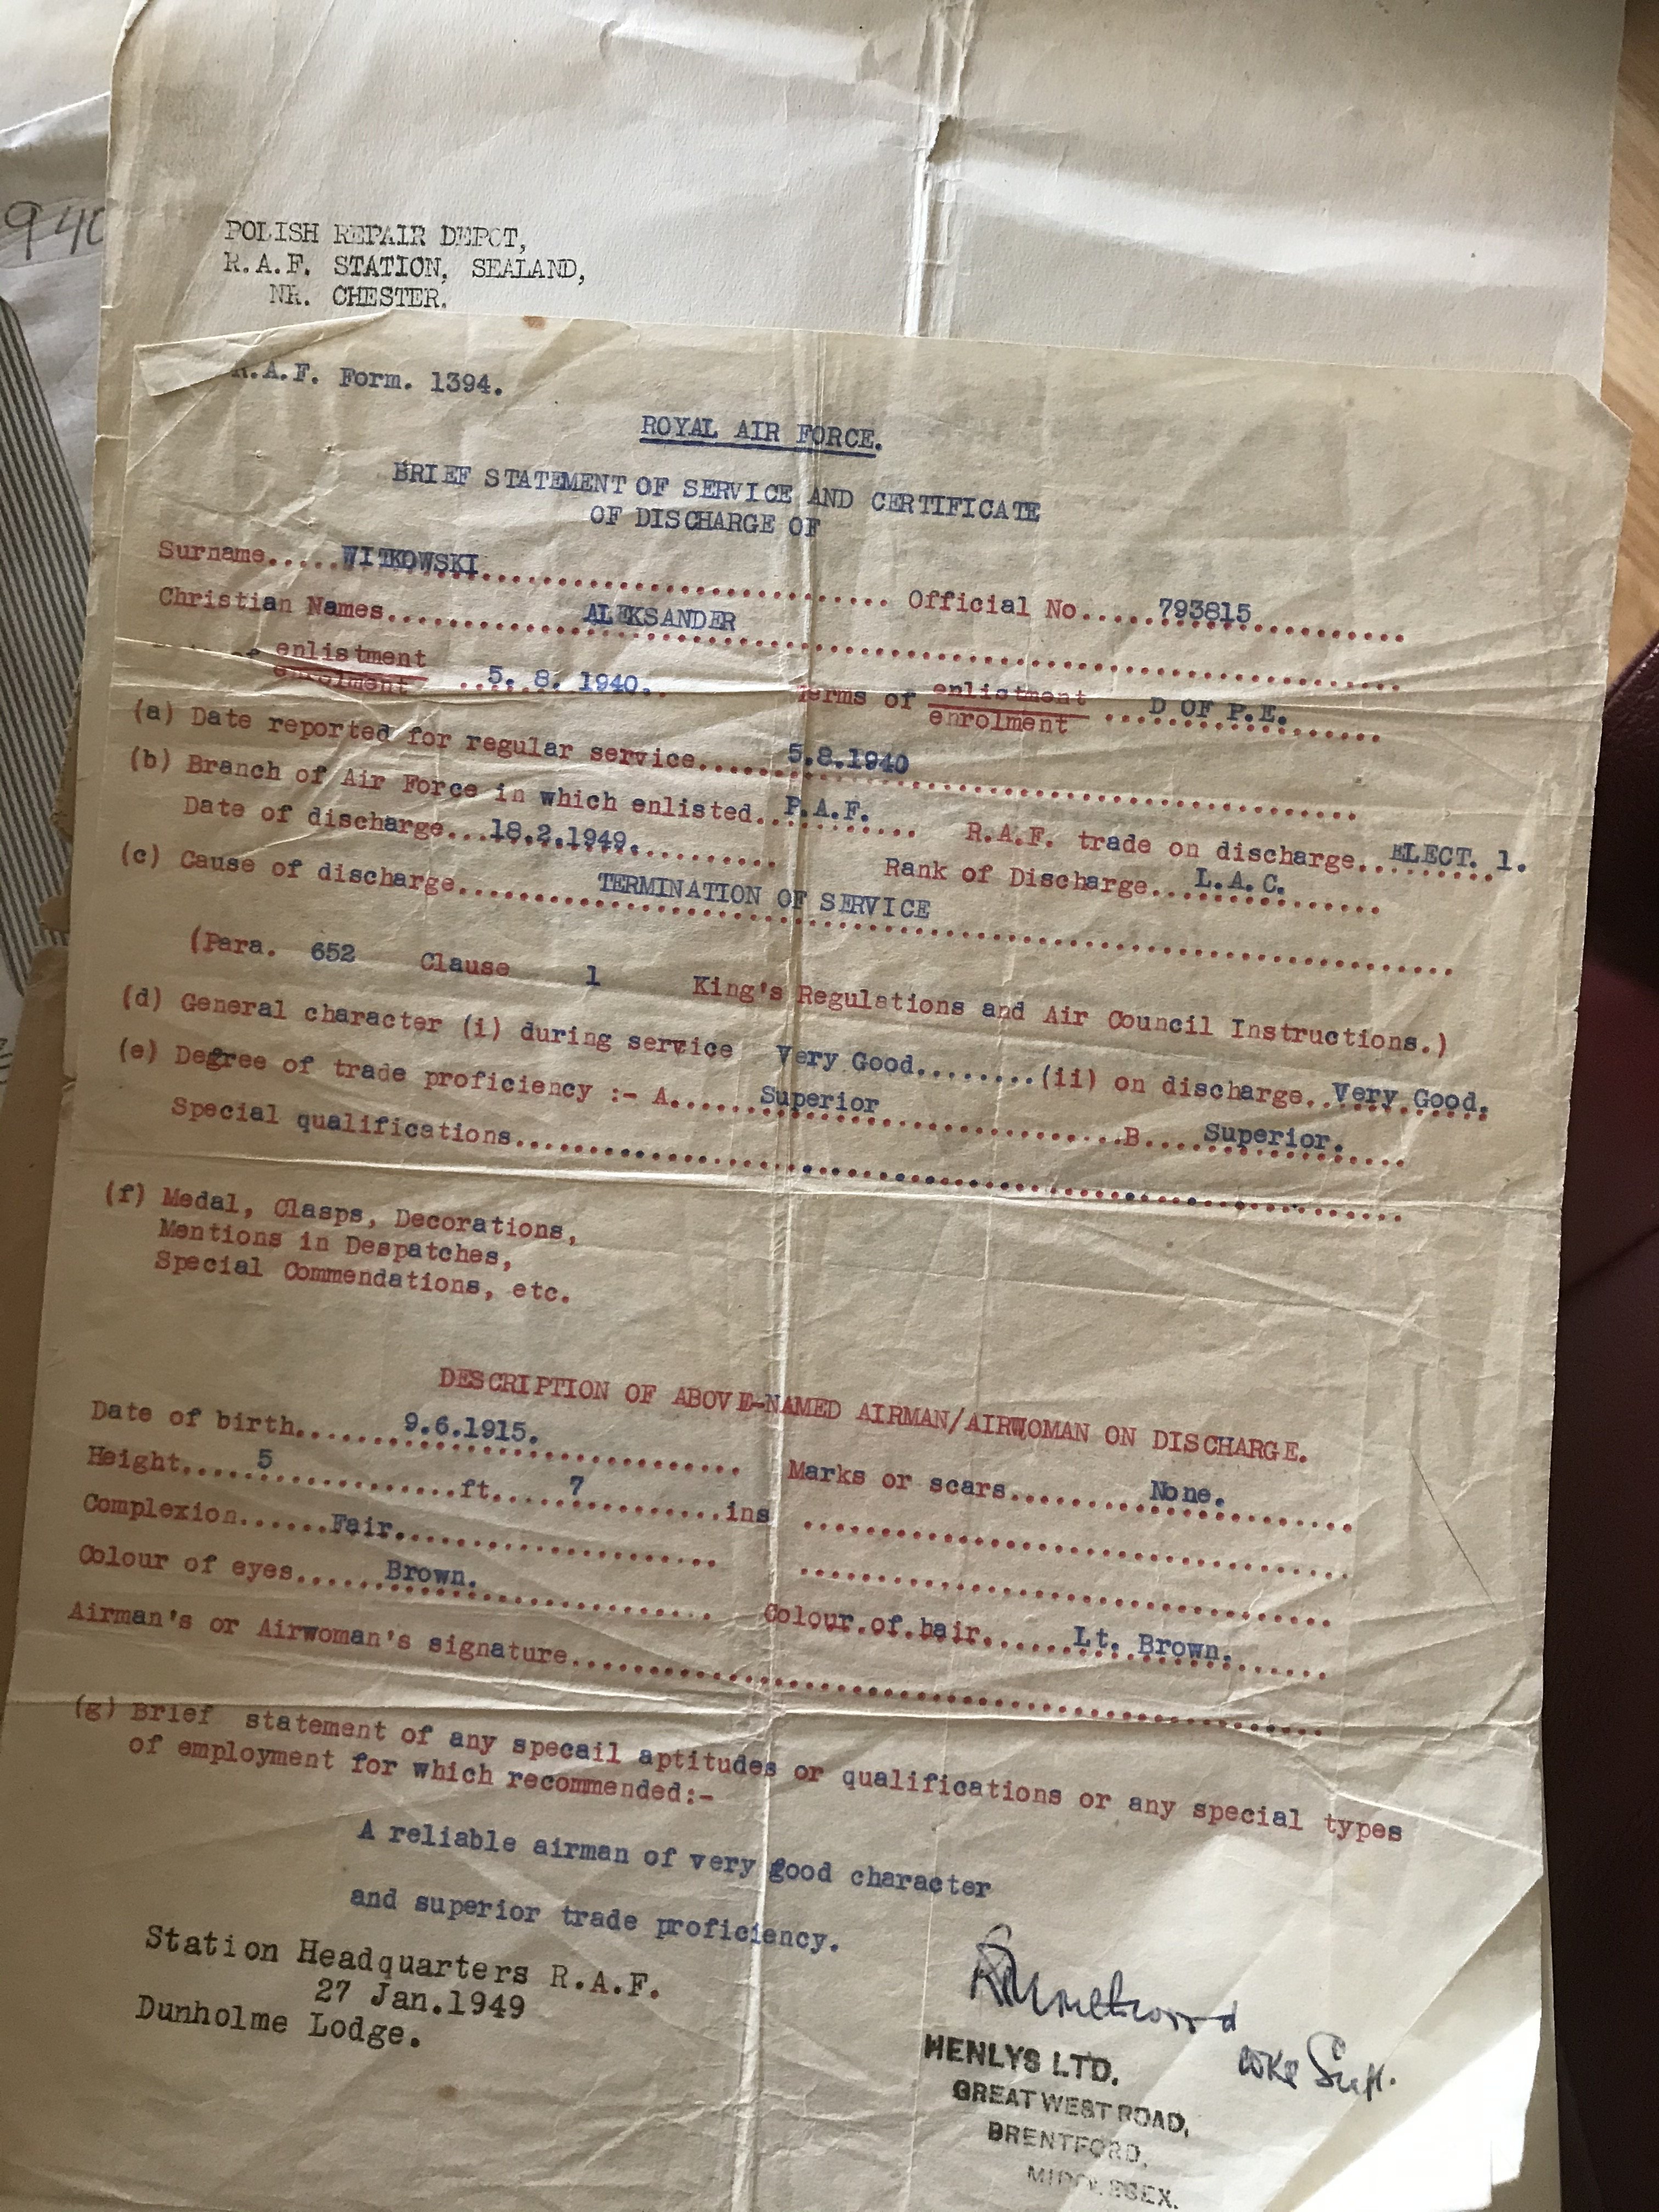 940
POLISH REPAIR DEPOT,
R.A.F. STATION, SEALAND,
NR. CHESTER.
R.A.F. Form. 1394.
ROYAL AIR FORCE.
BRIEF STATEMENT OF SERVICE AND CERTIFICATE
OF DISCHARGE OF
Surname.....WITKOWSKI.......... Official No.....793815..........
Christian Names..........ALEKSANDER..........
of enlistment enrolment ...5. 8. 1940... Terms of enlistment enrolment ...D OF P.E...
(a) Date reported for regular service.....5.8.1940..........
(b) Branch of Air Force in which enlisted..P.A.F....... R.A.F. trade on discharge..ELECT. 1.
Date of discharge...18.2.1949.......... Rank of Discharge...L.A.C.......
(c) Cause of discharge..........TERMINATION OF SERVICE..........
(Para. 652 Clause 1 King's Regulations and Air Council Instructions.)
(d) General character (i) during service Very Good........(ii) on discharge..Very Good.
(e) Degree of trade proficiency :- A......Superior..........B....Superior.....
Special qualifications..........
(f) Medal, Clasps, Decorations,
Mentions in Despatches,
Special Commendations, etc.
DESCRIPTION OF ABOVE-NAMED AIRMAN/AIRWOMAN ON DISCHARGE.
Date of birth.......9.6.1915.......... Marks or scars..........None.......
Height.....5..........ft.....7..........ins
Complexion......Fair..........
Colour of eyes......Brown.......... Colour.of.hair.......Lt. Brown.......
Airman's or Airwoman's signature..........
(g) Brief statement of any specail aptitudes or qualifications or any special types
of employment for which recommended:-
A reliable airman of very good character
and superior trade proficiency.
Station Headquarters R.A.F.
27 Jan.1949
Dunholme Lodge.
HENLYS LTD.
GREAT WEST ROAD,
BRENTFORD,
MIDDLESEX.